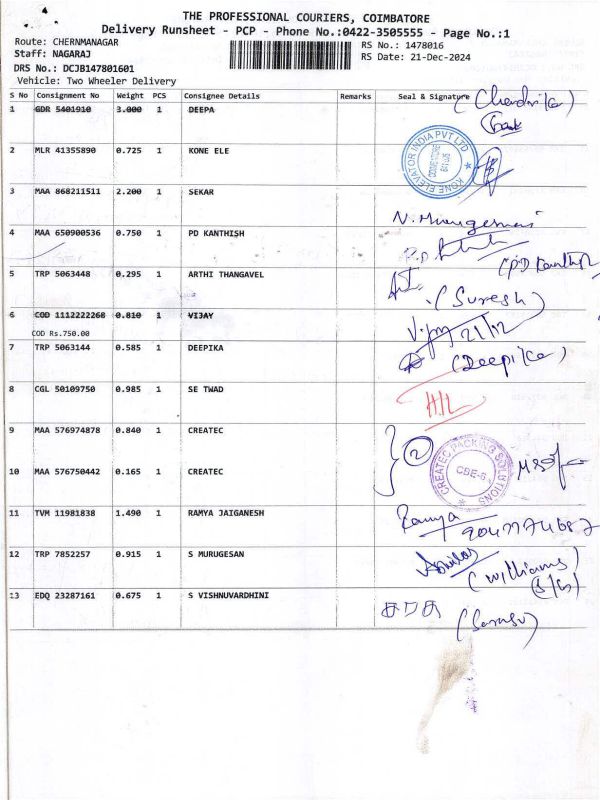 THE PROFESSIONAL COURIERS, COIMBATORE
Delivery Runsheet - PCP - Phone No.:0422-3505555 - Page No.:1
Route: CHERNMANAGAR
RS No.: 1478016
Staff: NAGARAJ
RS Date: 21-Dec-2024
DRS No.: DCJB147801601
Vehicle: Two Wheeler Delivery
S No Consignment No Weight PCS Consignee Details Remarks Seal & Signature
1 GDR 5401910 3.000 1 DEEPA (Chandrika)
2 MLR 41355890 0.725 1 KONE ELE
KONE ELEVATOR INDIA PVT LTD
3 MAA 868211511 2.200 1 SEKAR
4 MAA 650900536 0.750 1 PD KANTHISH
(PD Kanthish)
5 TRP 5063448 0.295 1 ARTHI THANGAVEL
(Suresh)
6 COD 1112222268 0.810 1 VIJAY
COD Rs.750.00
Vijay 21/12
7 TRP 5063144 0.585 1 DEEPIKA (Deepika)
8 CGL 50109750 0.985 1 SE TWAD
9 MAA 576974878 0.840 1 CREATEC
2
CREATEC PACKING SOLUTIONS
CBE-6
10 MAA 576750442 0.165 1 CREATEC
11 TVM 11981838 1.490 1 RAMYA JAIGANESH Ramya
12 TRP 7852257 0.915 1 S MURUGESAN
(Williams)
13 EDQ 23287161 0.675 1 S VISHNUVARDHINI
(Sarasu)